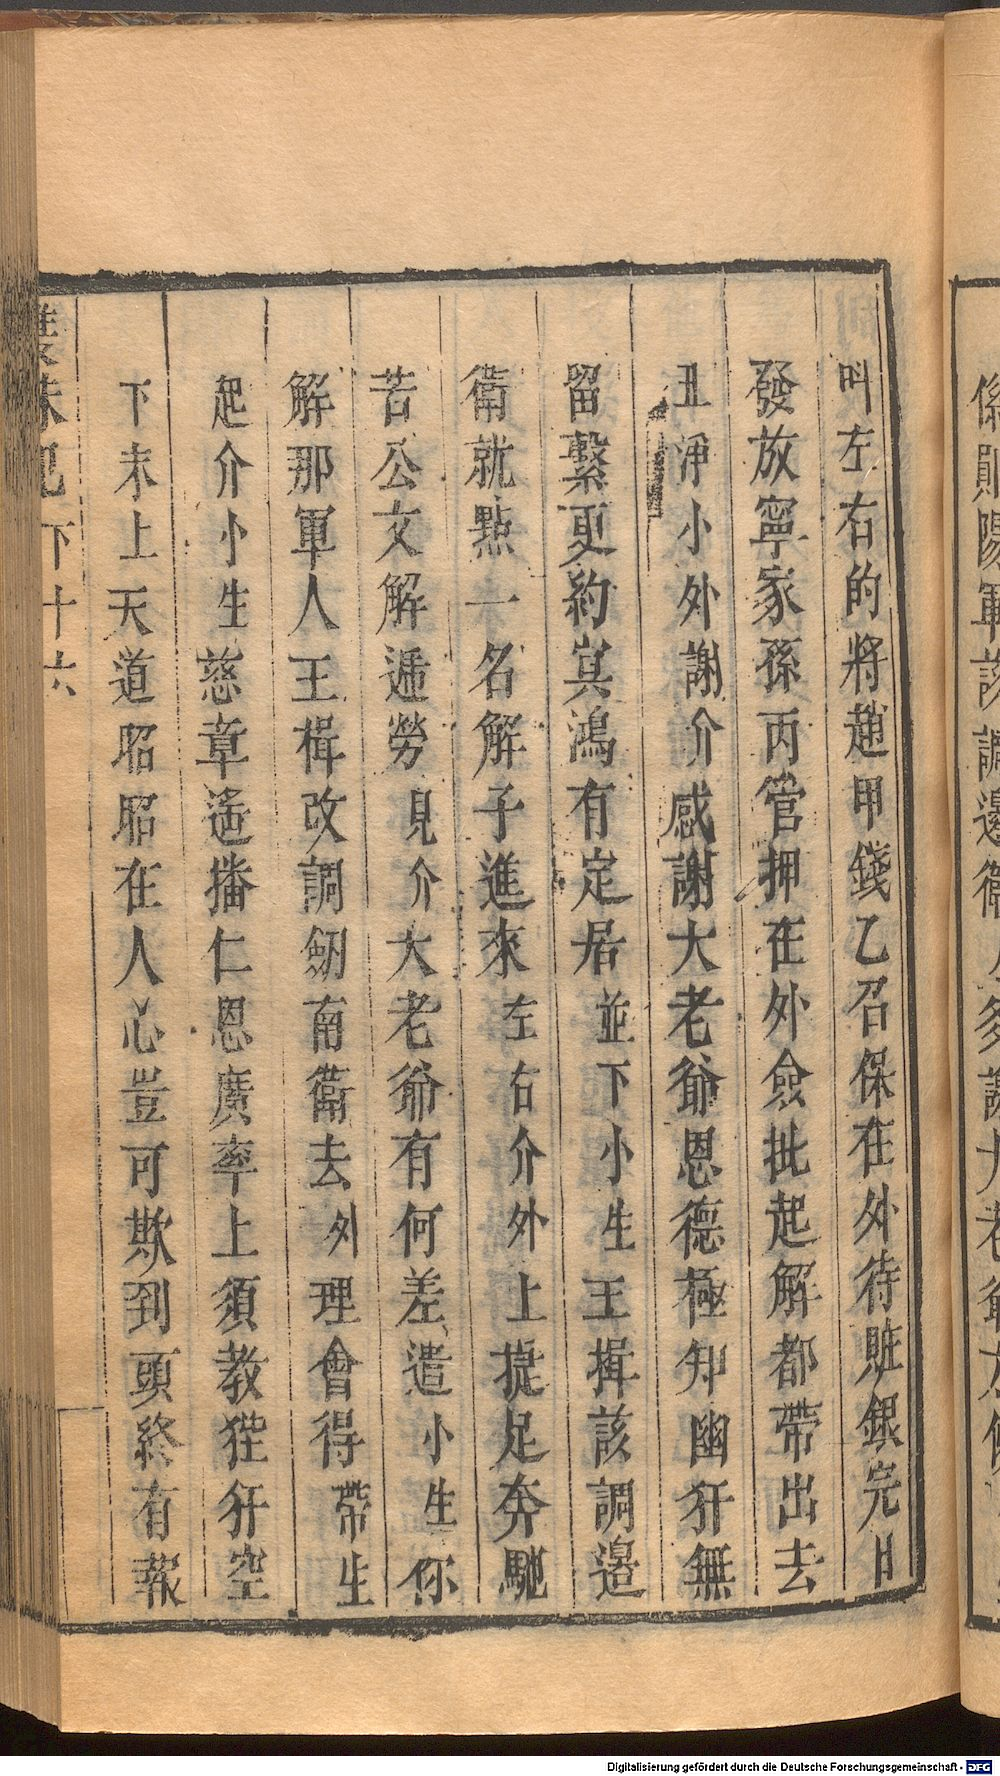 叫左右的將趙甲錢乙召保在外待賍銀完日
發放寧家孫丙管押在外僉批起解都帶出去
丑淨小外謝介感謝大老爺恩德極知幽犴無
留繫更約冥鴻有定居並下小生王揖該調邊
衛就點一名解子進來左右介外上捷足奔馳
苦公文解遞勞見介大老爺有何差遣小生你
解那軍人王楫改調劒南衛去外理會得帶生
起介小生慈章遙播仁恩廣率上須教狴犴空
下末上天道昭昭在人心豈可欺到頭終有報
雙珠記 下 十六
係剛陽軍該調邊衛
Digitalisierung gefördert durch die Deutsche Forschungsgemeinschaft - DFG